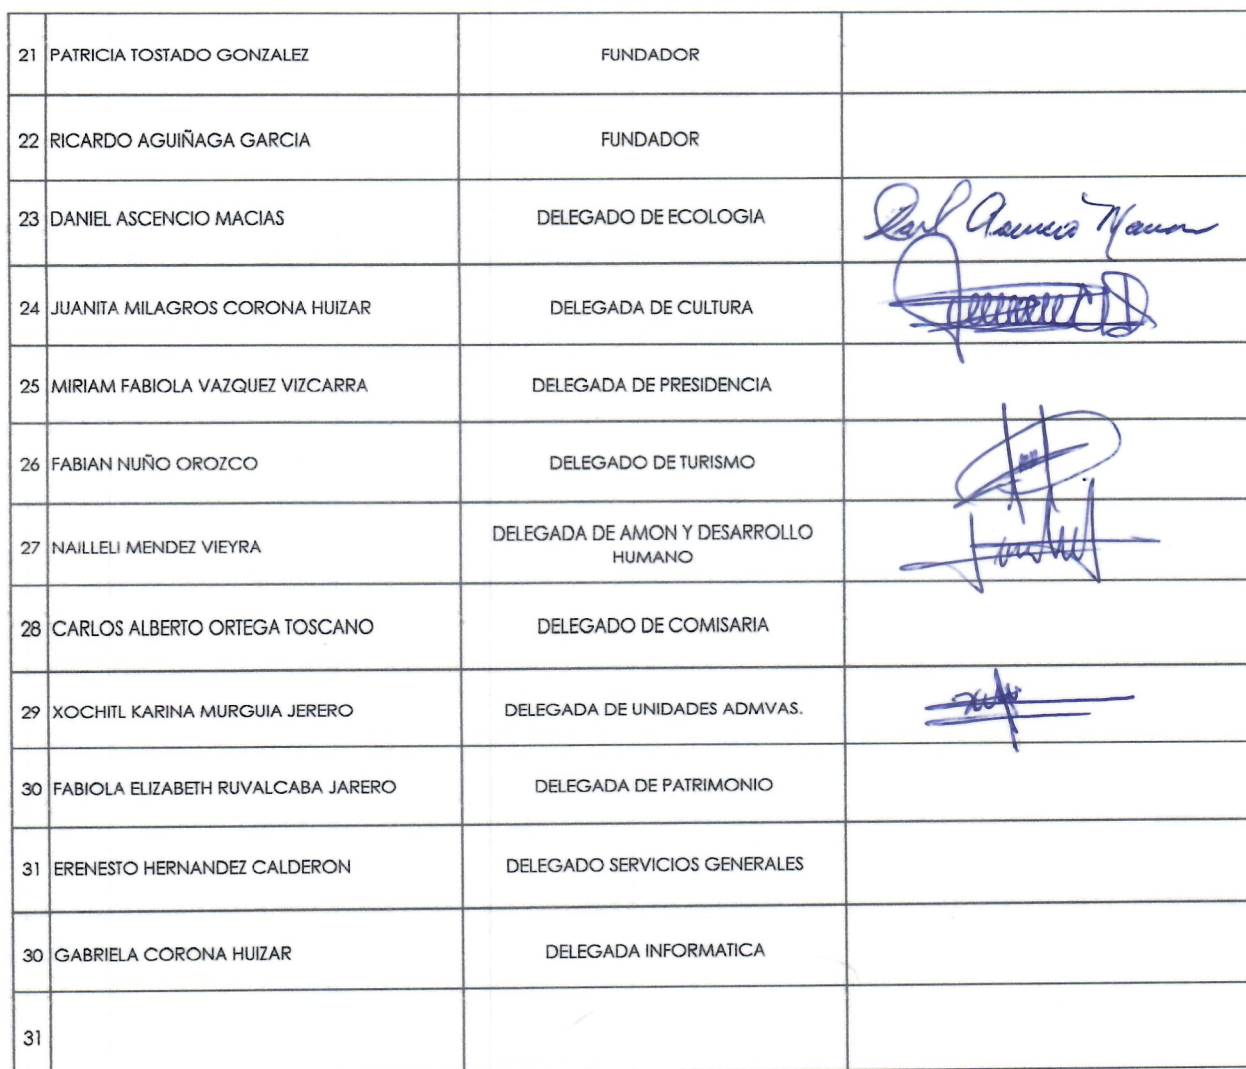 21 PATRICIA TOSTADO GONZALEZ FUNDADOR
22 RICARDO AGUIÑAGA GARCIA FUNDADOR
23 DANIEL ASCENCIO MACIAS DELEGADO DE ECOLOGIA
24 JUANITA MILAGROS CORONA HUIZAR DELEGADA DE CULTURA
25 MIRIAM FABIOLA VAZQUEZ VIZCARRA DELEGADA DE PRESIDENCIA
26 FABIAN NUÑO OROZCO DELEGADO DE TURISMO
27 NAILLELI MENDEZ VIEYRA DELEGADA DE AMON Y DESARROLLO
HUMANO
28 CARLOS ALBERTO ORTEGA TOSCANO DELEGADO DE COMISARIA
29 XOCHITL KARINA MURGUIA JERERO DELEGADA DE UNIDADES ADMVAS.
30 FABIOLA ELIZABETH RUVALCABA JARERO DELEGADA DE PATRIMONIO
31 ERENESTO HERNANDEZ CALDERON DELEGADO SERVICIOS GENERALES
30 GABRIELA CORONA HUIZAR DELEGADA INFORMATICA
31